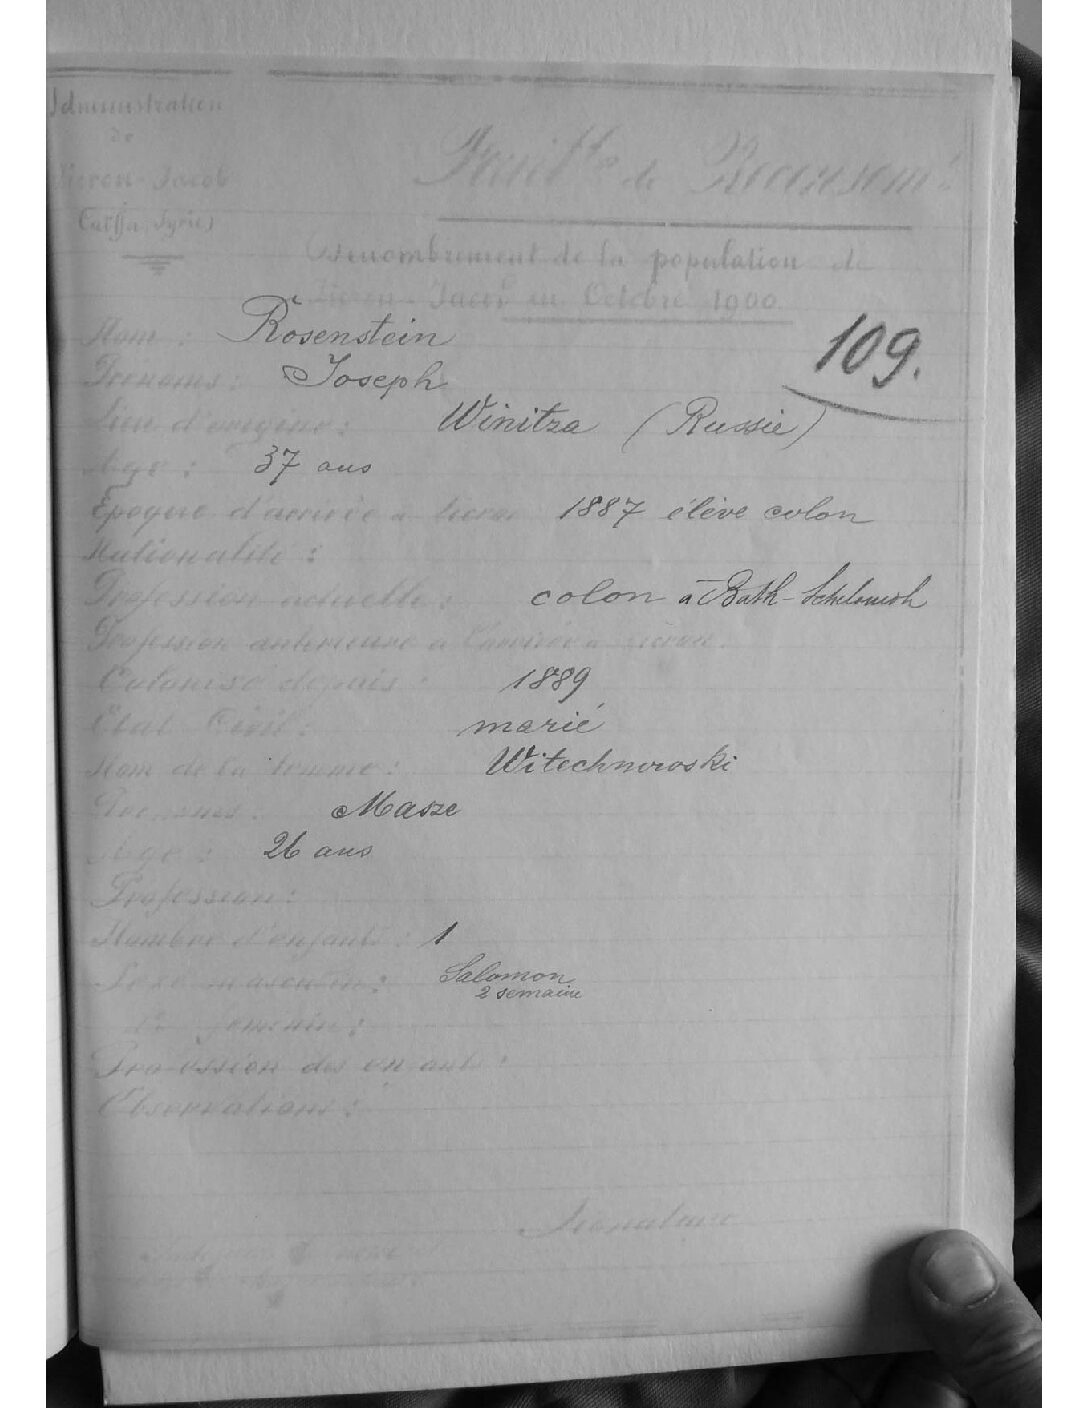 Administration
de
Zicron-Jacob
Caïffa, Syrie)
Feuille de Recensemt
Dénombrement de la population de
Zicron-Jacob en Octobre 1900
109.
Nom : Rosenstein
Prénoms : Joseph
Lieu d'origine : Winitza (Russie)
Age : 37 ans
Epoque d'arrivée à Zicron 1887 élève colon
Nationalité :
Profession actuelle : colon à Bath-Schelomoh
Profession antérieure à l'arrivée à Zicron :
Colonisé depuis : 1889
Etat Civil : marié
Nom de la femme : Witechnowski
Prénoms : Masze
Age : 26 ans
Profession :
Nombre d'enfants : 1
Sexe masculin : Salomon
2 semaine
féminin :
Profession des enfants :
Observations :
Signature